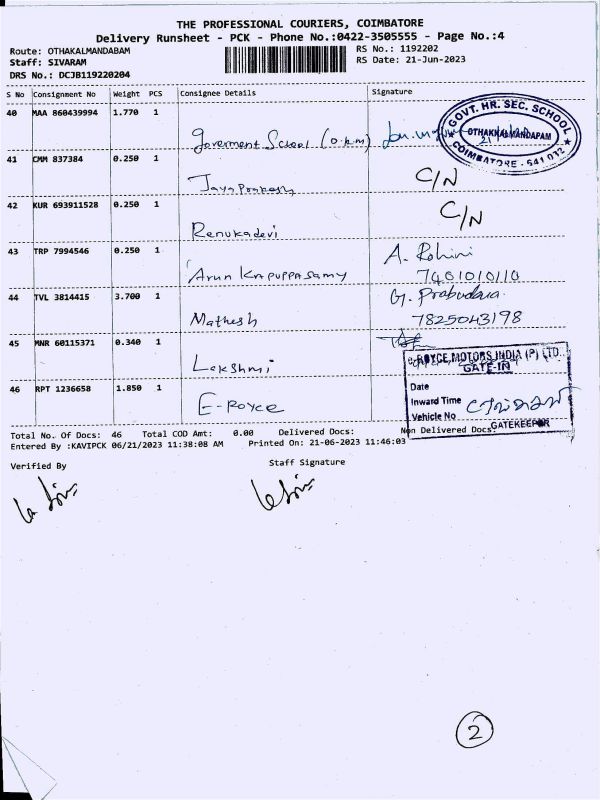 THE PROFESSIONAL COURIERS, COIMBATORE
Delivery Runsheet - PCK - Phone No.:0422-3505555 - Page No.:4
Route: OTHAKALMANDABAM
RS No.: 1192202
Staff: SIVARAM
RS Date: 21-Jun-2023
DRS No.: DCJB119220204
S No Consignment No Weight PCS Consignee Details Signature
40 MAA 860439994 1.770 1
Government School (O.K.M)
GOVT. HR. SEC. SCHOOL
OTHAKKALMANDAPAM
COIMBATORE - 641 032
41 CMM 837384 0.250 1
Jaya Prakash
C/N
42 KUR 693911528 0.250 1
Renukadevi
C/N
43 TRP 7994546 0.250 1
Arun Karuppasamy
A. Rohini
7401010110
44 TVL 3814415 3.700 1
Mathesh
G.
7825043198
45 MNR 60115371 0.340 1
Lakshmi
46 RPT 1236658 1.850 1
E-Royce
e-ROYCE MOTORS INDIA (P) LTD.
GATE-IN
Date
Inward Time
Vehicle No
GATEKEEPER
Total No. Of Docs: 46 Total COD Amt: 0.00 Delivered Docs: Non Delivered Docs:
Entered By :KAVIPCK 06/21/2023 11:38:08 AM Printed On: 21-06-2023 11:46:03
Verified By Staff Signature
2